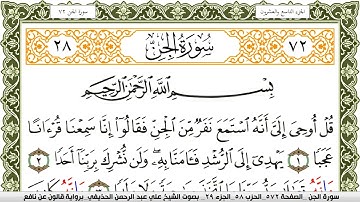 سورة الجن ٧٢
الجزء التاسع والعشرون
٧٢
سُورَةُ الجِنِّ
٢٨
بِسْمِ اللَّهِ الرَّحْمَٰنِ الرَّحِيمِ
قُلُ اوحِيَ إِلَيَّ أَنَّهُ اسْتَمَعَ نَفَرٌ مِّنَ الْجِنِّ فَقَالُوا إِنَّا سَمِعْنَا قُرْءَانًا
عَجَبًا ١ يَهْدِي إِلَى الرُّشْدِ فَـَٔامَنَّا بِهِ وَلَن نُّشْرِكَ بِرَبِّنَا أَحَدًا ٢
سورة الجن . الصفحة ٥٧٢ . الحزب ٥٨ . الجزء ٢٩ . بصوت الشيخ علي عبد الرحمن الحذيفي . برواية قالون عن نافع